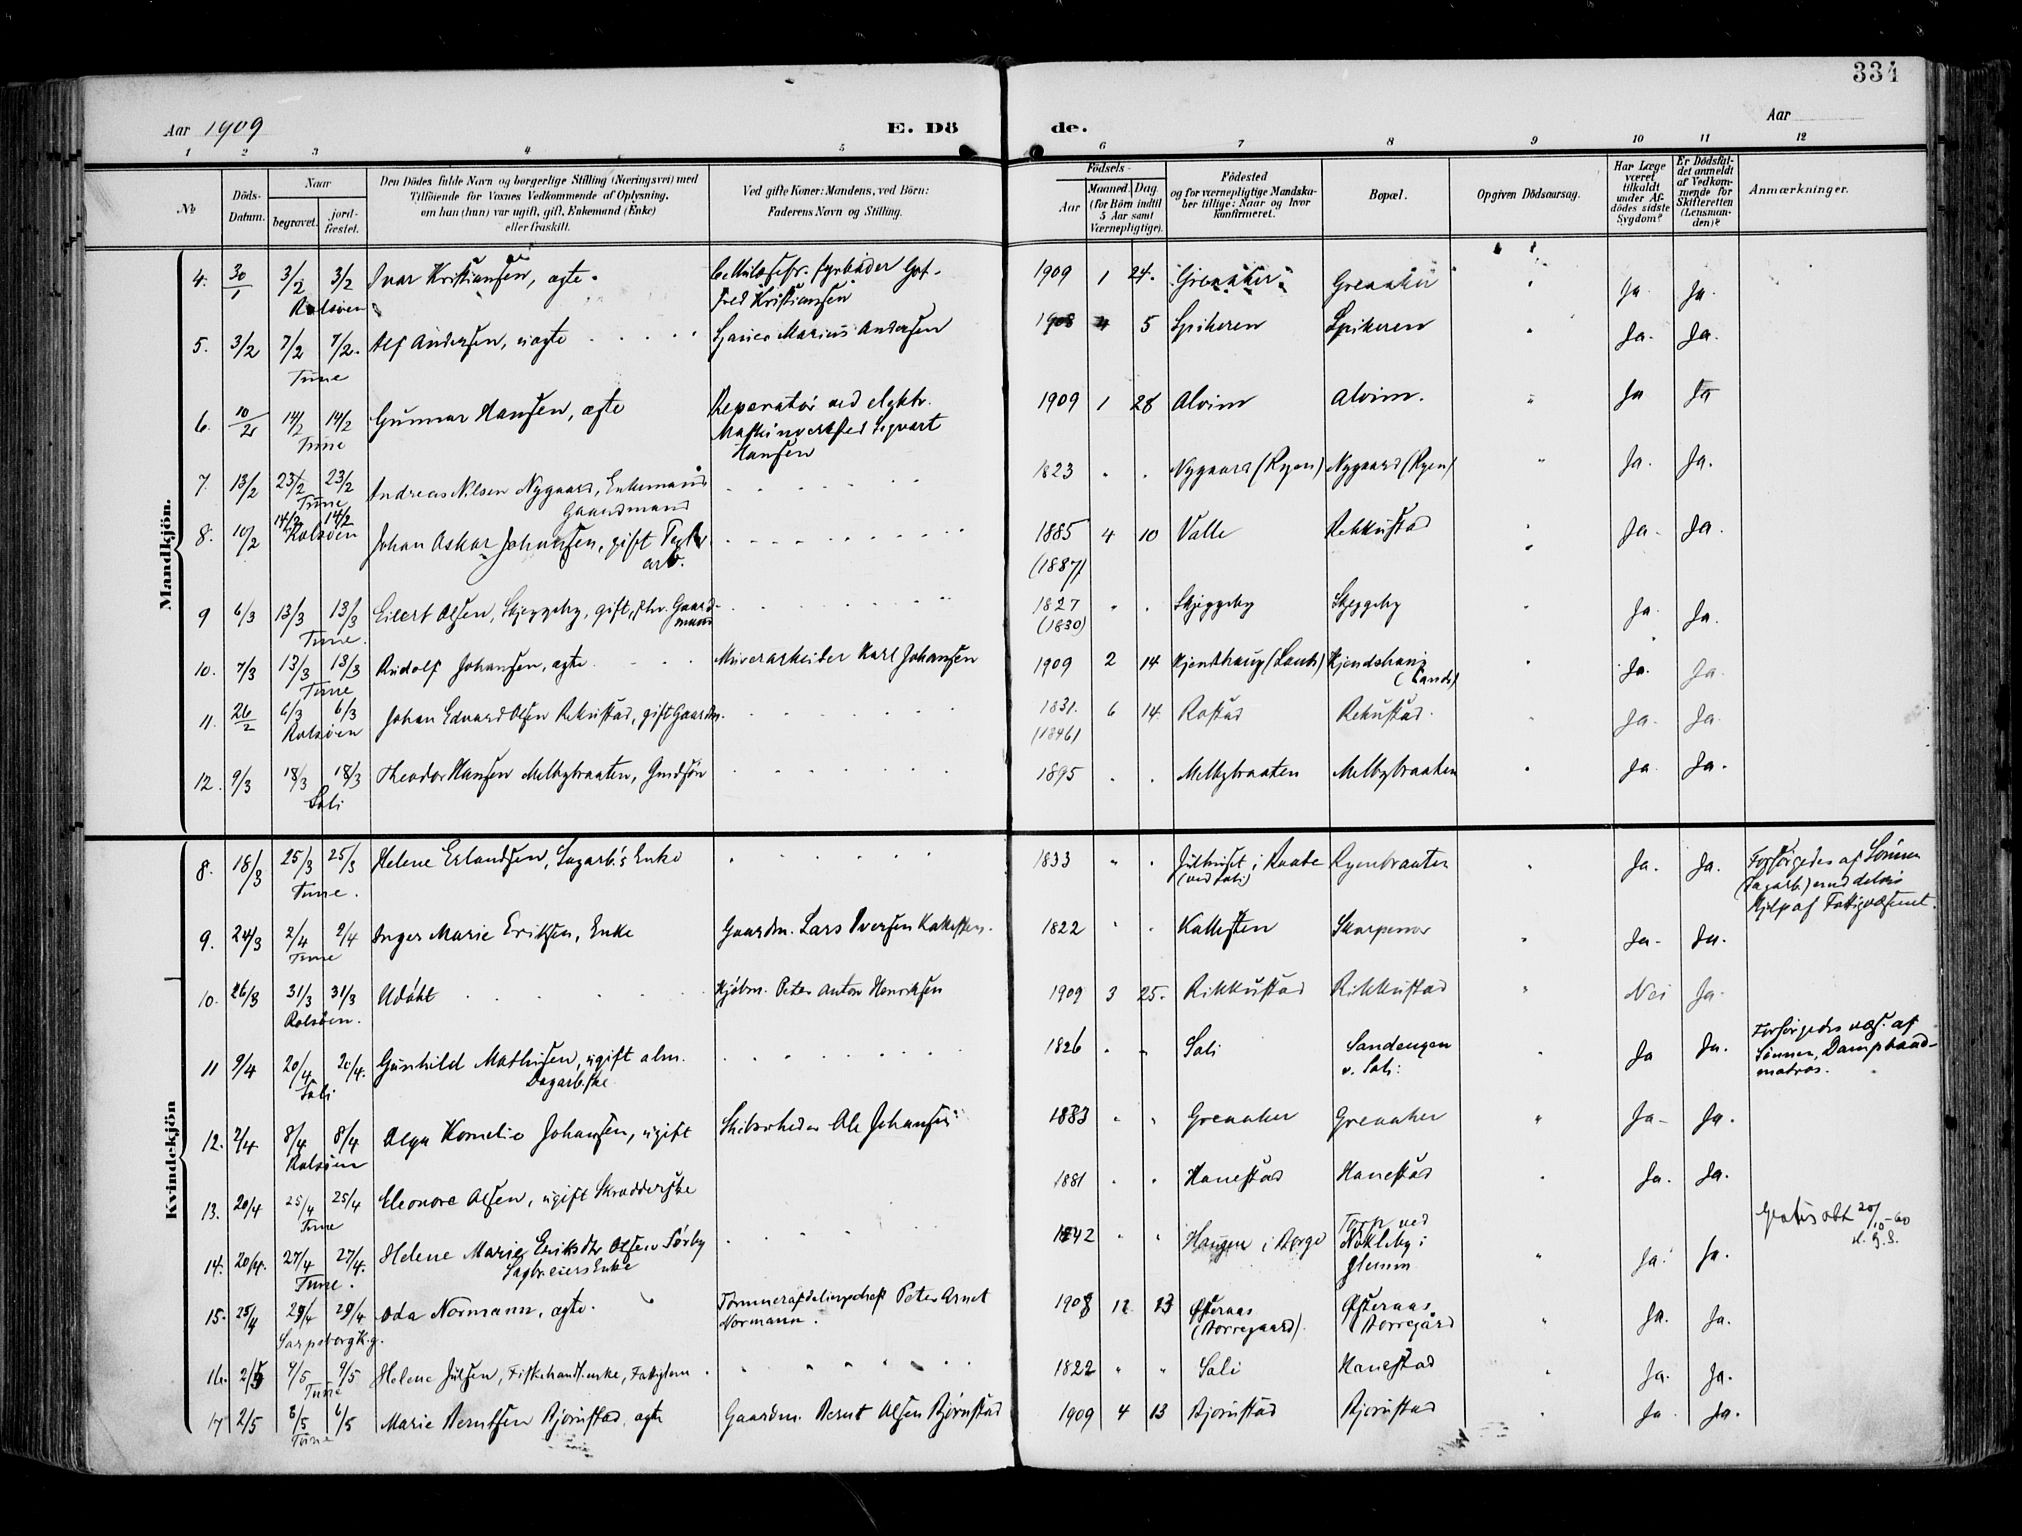 334
Aar 1909
E. Dö
de.
Aar
1 2 3 4 5 6 7 8 9 10 11 12
№
Döds-Datum.
Naar
begravet.
jord-fæstet.
Den Dödes fulde Navn og borgerlige Stilling (Næringsvei) med
Tilföiende for Voxnes Vedkommende af Oplysning,
om han (hun) var ugift, gift, Enkemand (Enke)
eller fraskilt.
Ved gifte Koner: Mandens, ved Börn:
Faderens Navn og Stilling.
Födsels-
Aar
Maaned. Dag.
(for Börn indtil
5 Aar samt
Værnepligtige).
Födested
og for værnepligtige Mandska-
ber tillige: Naar og hvor
konfirmeret.
Bopæl.
Opgiven Dödsaarsag.
Har Læge
været
tilkaldt
under Af-
dödes sidste
Sygdom?
Er Dödsfal-
det anmeldt
af Vedkom-
mende for
Skifteretten
(Lensman-
den)?
Anmærkninger.
Mandkjön.
4. 30/1 3/2 3/2 Ivar Kristiansen, ægte. fyrbøder Got- 1909 1 24. Greaaker Greaaker Ja. Ja.
Rolsøen fred Kristiansen
5. 3/2 7/2 7/2. Alf Andersen, uægte Marius Andersen 1908 4 5 Spikeren Spikeren Ja. Ja.
Tune
6. 10/2 14/2 14/2 Gunnar Hansen, ægte Reparatør ved elektr. 1909 1 28 Alvim Alvim. Ja Ja
Tune Maskinverksted Sigvart
Hansen
7. 13/2 23/2 23/2 Andreas Nilsen Nygaard, Enkemand 1823 Nygaard (Ryen) Nygaard (Ryen) Ja. Ja.
Tune Gaardmand
8. 10/2 14/2 14/2 Johan Oskar Johansen, gift Tegl- 1885 4 10 Valle Rekkustad Ja. Ja.
Rolsøen arb. (1887)
9 6/3 13/3 13/3 Eilert Olsen, Skjeggeby, gift, fhv. Gaard- 1827 Skjeggeby Skjeggeby Ja. Ja.
Tune. mand (1830)
10. 7/3 13/3 13/3 Rudolf Johansen, ægte Murerarbeider Karl Johansen 1909 2 14 Kjendshaug (Sands) Kjendshaug Ja. Ja.
Tune (Sands)
11. 26/2 6/3 6/3 Johan Edvard Olsen Rekustad, gift Gaardm. 1831. 6 14. Rostad Rekustad. Ja. Ja.
Rolsøen (1846)
12. 9/3 18/3 18/3 Theodor Hansen Melbybraaten, 1895 Melbybraaten Melbybraaten Ja. Ja.
Soli
Kvindekjön
8. 18/3 25/3 25/3 Helene Erlandsen, Sagarb's Enke 1833 Julhuset i Raade Ryenbraaten Ja. Ja. Forsørgedes af Sønnen
Tune. (ved Soli) (Sagarb.) med delvis
Hjelp af Fattigvæsenet.
9. 24/3 2/4 2/4 Inger Marie Eriksen, Enke Gaardm. Lars Iversen Kallesten. 1822 Kallesten Skarpenor Ja. Ja.
Tune
10. 26/3 31/3 31/3 Udøbt Kjøbm. Peter Anton Henriksen 1909 3 25. Rikkustad Rikkustad Nei Ja.
Rolsøen.
11 9/4 20/4 20/4. Gunhild Mathisen, ugift alm. 1826 Soli Sandengen Ja Ja. Forsørgedes væs. af
Soli Dagarb.ske v. Soli. Sønnen, Dampbaad-
matros.
12. 2/4 8/4 8/4 Olga Kornelie Johansen, ugift Skibsrheder Ole Johansen 1883 Greaaker Greaaker Ja. Ja.
Rolsøen
13. 20/4 25/4 25/4 Eleonore Olsen, ugift Skrædderske 1881 Hanestad Hanestad Ja. Ja.
Tune
14. 20/4. 27/4 27/4. Helene Marie Eriksdtr Olsen Sørby 1842 Haugen i Borge Torp ved Ja. Ja. Gratis att 20/10-60
Tune. Enke Nokleby i
Glemm
15. 25/4 29/4 29/4 Oda Normann, ægte. Peter Arnet 1908 12 23 Østernas Østernas Ja. Ja.
Sarpsborg K.g. Normann. (Borregaard). Borregård
16. 2/5 9/5 9/5 Helene Julsen, Fiskehandl. enke, Fattiglem 1822 Soli Hanestad Ja. Ja.
Tune
17 2/5 6/5 6/5 Marie Berntsen Bjørnstad, ægte Gaardm. Bernt Olsen Bjørnstad 1909 4 13 Bjørnstad Bjørnstad Ja. Ja.
Tune